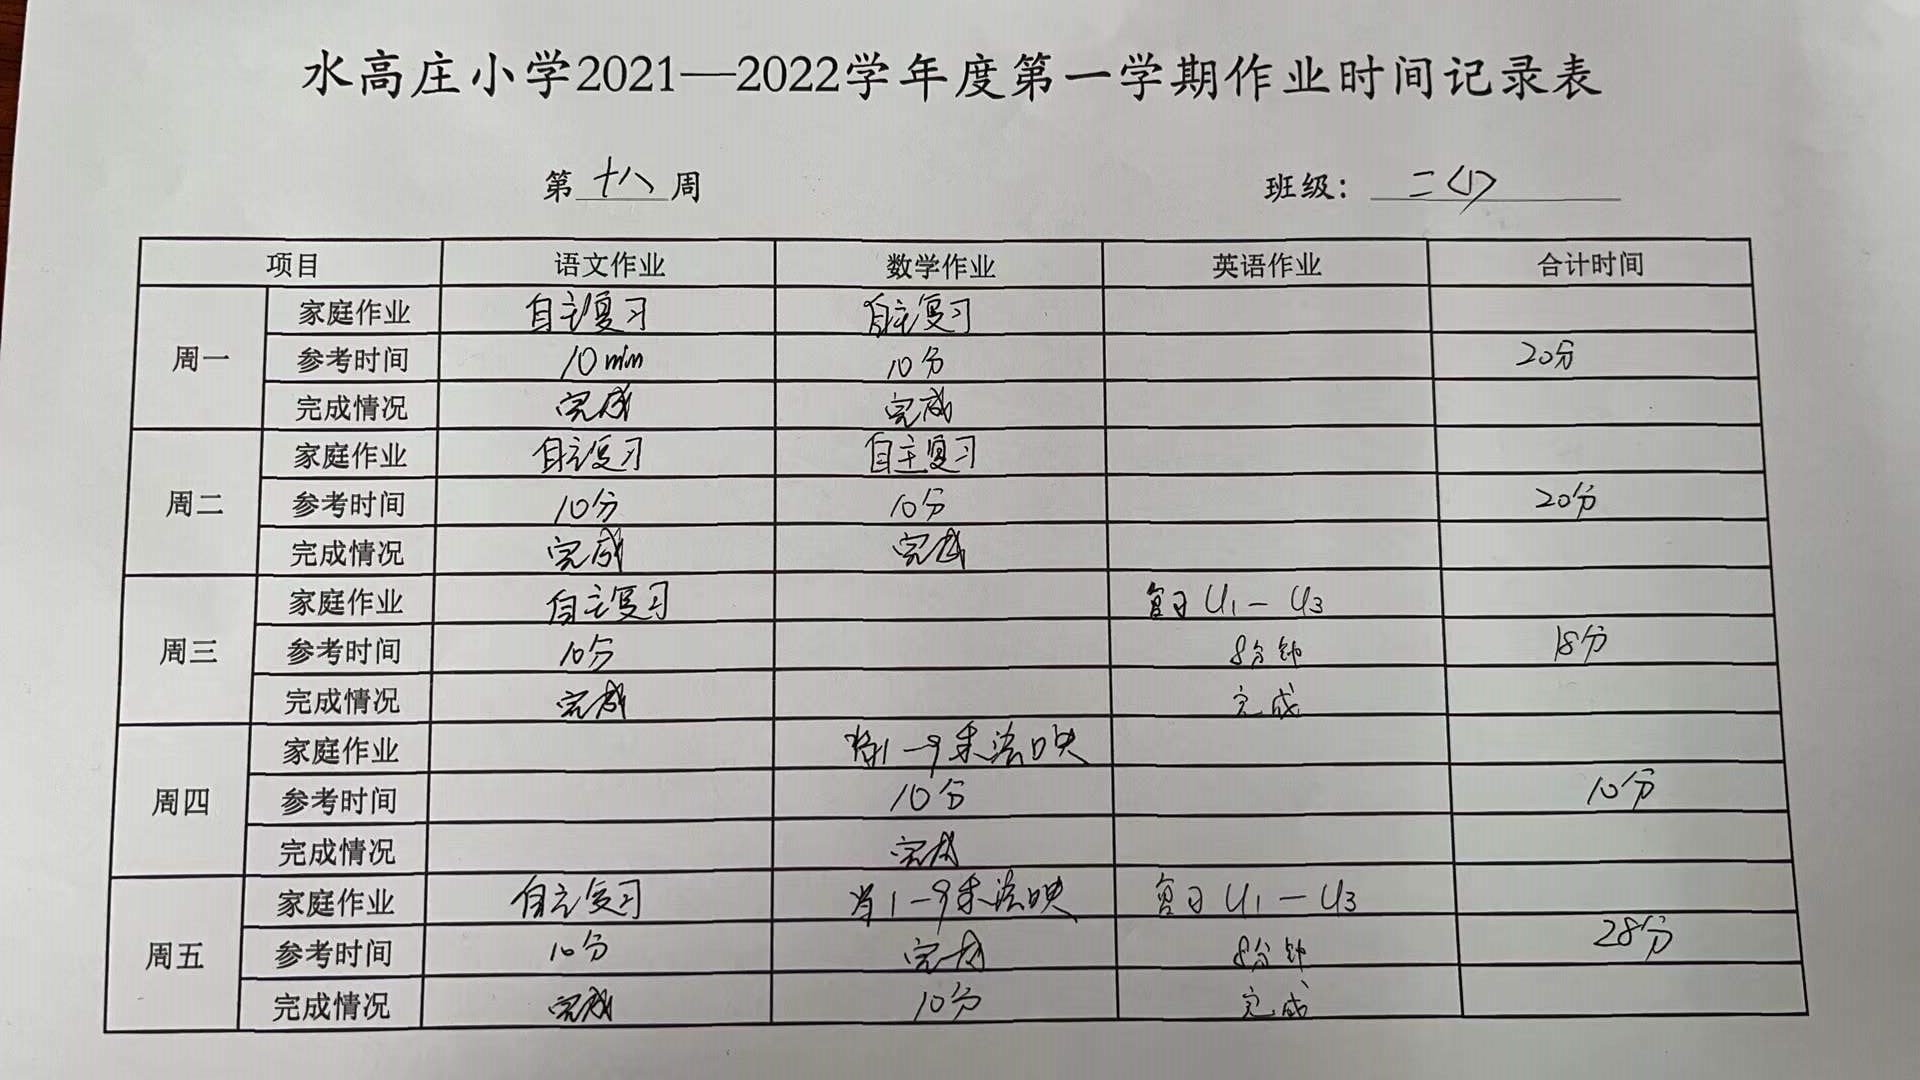 水高庄小学2021—2022学年度第一学期作业时间记录表
第十八周 班级：二〈1〉
项目 语文作业 数学作业 英语作业 合计时间
周一
家庭作业 自主复习 自主复习
参考时间 10min 10分 20分
完成情况 完成 完成
周二
家庭作业 自主复习 自主复习
参考时间 10分 10分 20分
完成情况 完成 完成
周三
家庭作业 自主复习 复习 U1－U3
参考时间 10分 8分钟 18分
完成情况 完成 完成
周四
家庭作业 背1－9乘法口诀
参考时间 10分 10分
完成情况 完成
周五
家庭作业 自主复习 背1－9乘法口诀 复习 U1－U3
参考时间 10分 完成 8分钟 28分
完成情况 完成 10分 完成